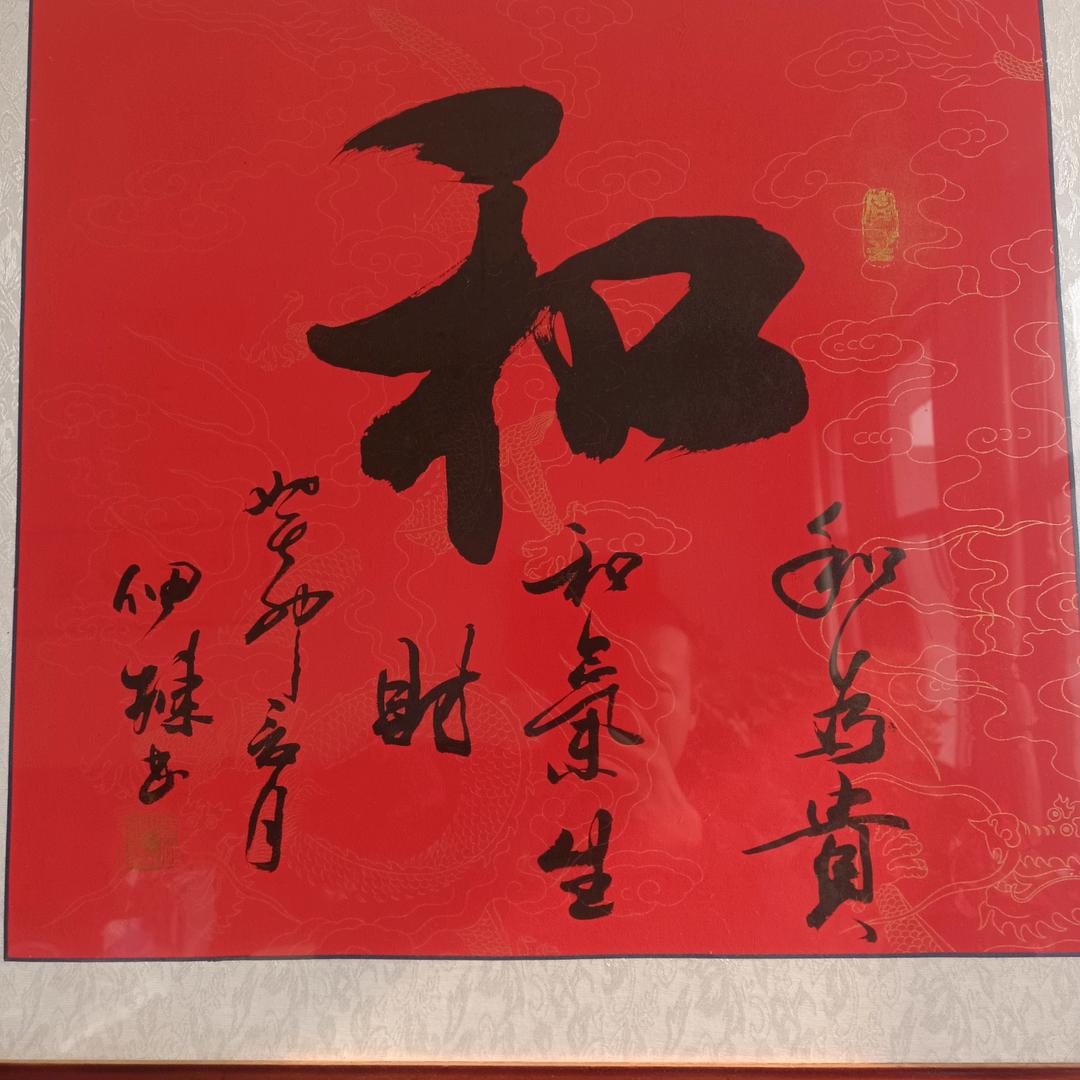 和
和為貴
和氣生
財
癸卯之月
伊 書